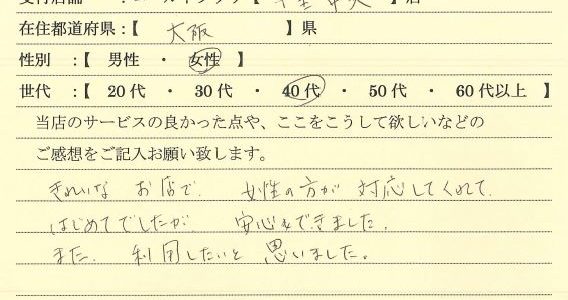 在住都道府県：【 大阪 】県
性別 ：【 男性 ・ 女性 】
世代 ：【 20代 ・ 30代 ・ 40代 ・ 50代 ・ 60代以上 】
当店のサービスの良かった点や、ここをこうして欲しいなどの
ご感想をご記入お願い致します。
きれいな お店で、 女性の方が 対応してくれて、
はじめてでしたが 安心をできました。
また、 利用したいと 思いました。